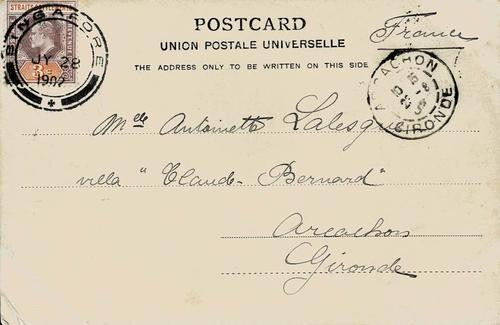 STRAITS SETTLEMENTS
SINGAPORE
JY 28
1902
POSTCARD
UNION POSTALE UNIVERSELLE
THE ADDRESS ONLY TO BE WRITTEN ON THIS SIDE
France
ARCACHON
GIRONDE
Melle Antoinette
villa "Claude-Bernard"
Arcachon
Gironde